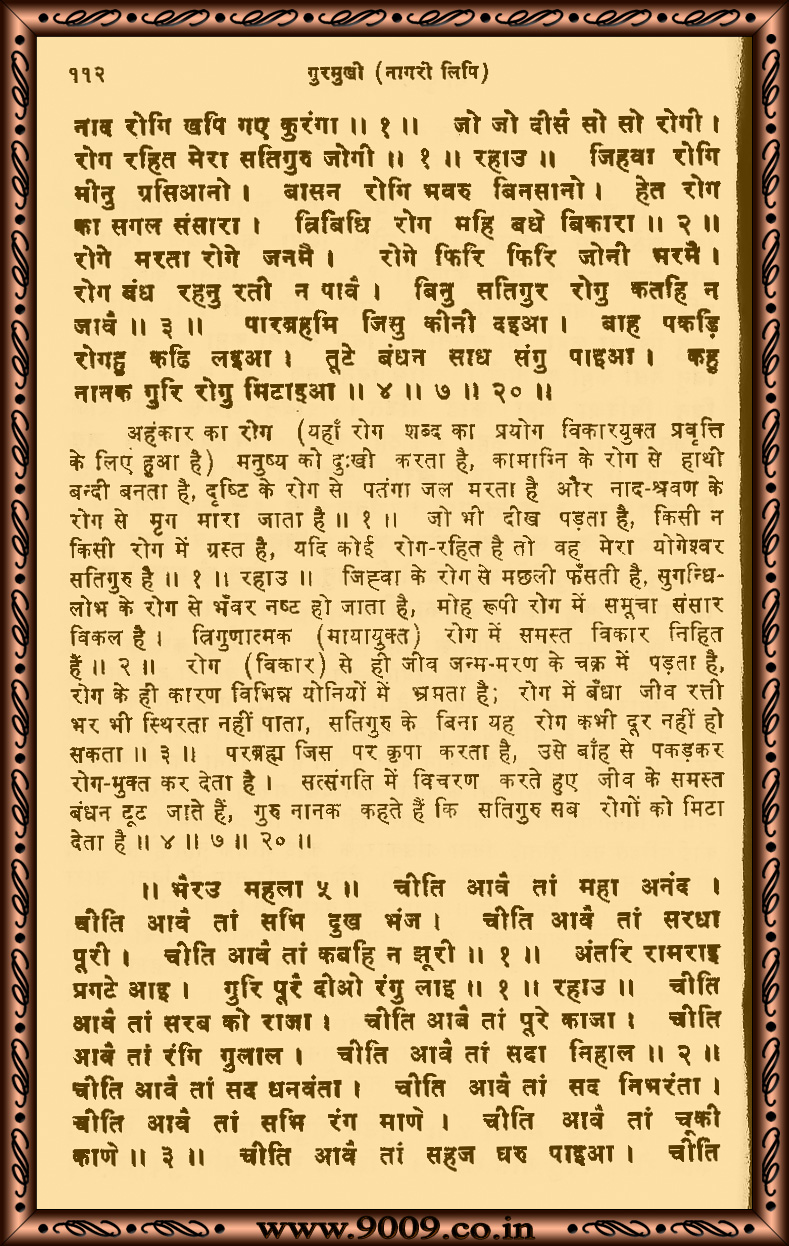 ११२ गुरमुखी (नागरी लिपि)
नाद रोगि खपि गए कुरंगा ॥ १ ॥ जो जो दीसै सो सो रोगी ।
रोग रहित मेरा सतिगुरु जोगी ॥ १ ॥ रहाउ ॥ जिहवा रोगि
मीनु ग्रसिआनो । बासन रोगि भवरु बिनसानो । हेत रोग
का सगल संसारा । त्रिबिधि रोग महि बधे बिकारा ॥ २ ॥
रोगे मरता रोगे जनमै । रोगे फिरि फिरि जोनी भरमै ।
रोग बंध रहनु रती न पावै । बिनु सतिगुर रोगु कतहि न
जावै ॥ ३ ॥ पारब्रहमि जिसु कीनी दइआ । बाह पकड़ि
रोगहु कढि लइआ । तूटे बंधन साध संगु पाइआ । कहु
नानक गुरि रोगु मिटाइआ ॥ ४ ॥ ७ ॥ २० ॥
अहंकार का रोग (यहाँ रोग शब्द का प्रयोग विकारयुक्त प्रवृत्ति
के लिए हुआ है) मनुष्य को दुःखी करता है, कामाग्नि के रोग से हाथी
बन्दी बनता है, दृष्टि के रोग से पतंगा जल मरता है और नाद-श्रवण के
रोग से मृग मारा जाता है ॥ १ ॥ जो भी दीख पड़ता है, किसी न
किसी रोग में ग्रस्त है, यदि कोई रोग-रहित है तो वह मेरा योगेश्वर
सतिगुरु है ॥ १ ॥ रहाउ ॥ जिह्वा के रोग से मछली फँसती है, सुगन्धि-
लोभ के रोग से भँवर नष्ट हो जाता है, मोह रूपी रोग में समूचा संसार
विकल है । त्रिगुणात्मक (मायायुक्त) रोग में समस्त विकार निहित
हैं ॥ २ ॥ रोग (विकार) से ही जीव जन्म-मरण के चक्र में पड़ता है,
रोग के ही कारण विभिन्न योनियों में भ्रमता है; रोग में बँधा जीव रत्ती
भर भी स्थिरता नहीं पाता, सतिगुरु के बिना यह रोग कभी दूर नहीं हो
सकता ॥ ३ ॥ परब्रह्म जिस पर कृपा करता है, उसे बाँह से पकड़कर
रोग-मुक्त कर देता है । सत्संगति में विचरण करते हुए जीव के समस्त
बंधन टूट जाते हैं, गुरु नानक कहते हैं कि सतिगुरु सब रोगों को मिटा
देता है ॥ ४ ॥ ७ ॥ २० ॥
॥ भैरउ महला ५ ॥ चीति आवै तां महा अनंद ।
चीति आवै तां सभि दुख भंज । चीति आवै तां सरधा
पूरी । चीति आवै तां कबहि न झूरी ॥ १ ॥ अंतरि रामराइ
प्रगटे आइ । गुरि पूरै दीओ रंगु लाइ ॥ १ ॥ रहाउ ॥ चीति
आवै तां सरब को राजा । चीति आवै तां पूरे काजा । चीति
आवै तां रंगि गुलाल । चीति आवै तां सदा निहाल ॥ २ ॥
चीति आवै तां सद धनवंता । चीति आवै तां सद निभरंता ।
चीति आवै तां सभि रंग माणे । चीति आवै तां चूकी
काणे ॥ ३ ॥ चीति आवै तां सहज घरु पाइआ । चीति
www.9009.co.in